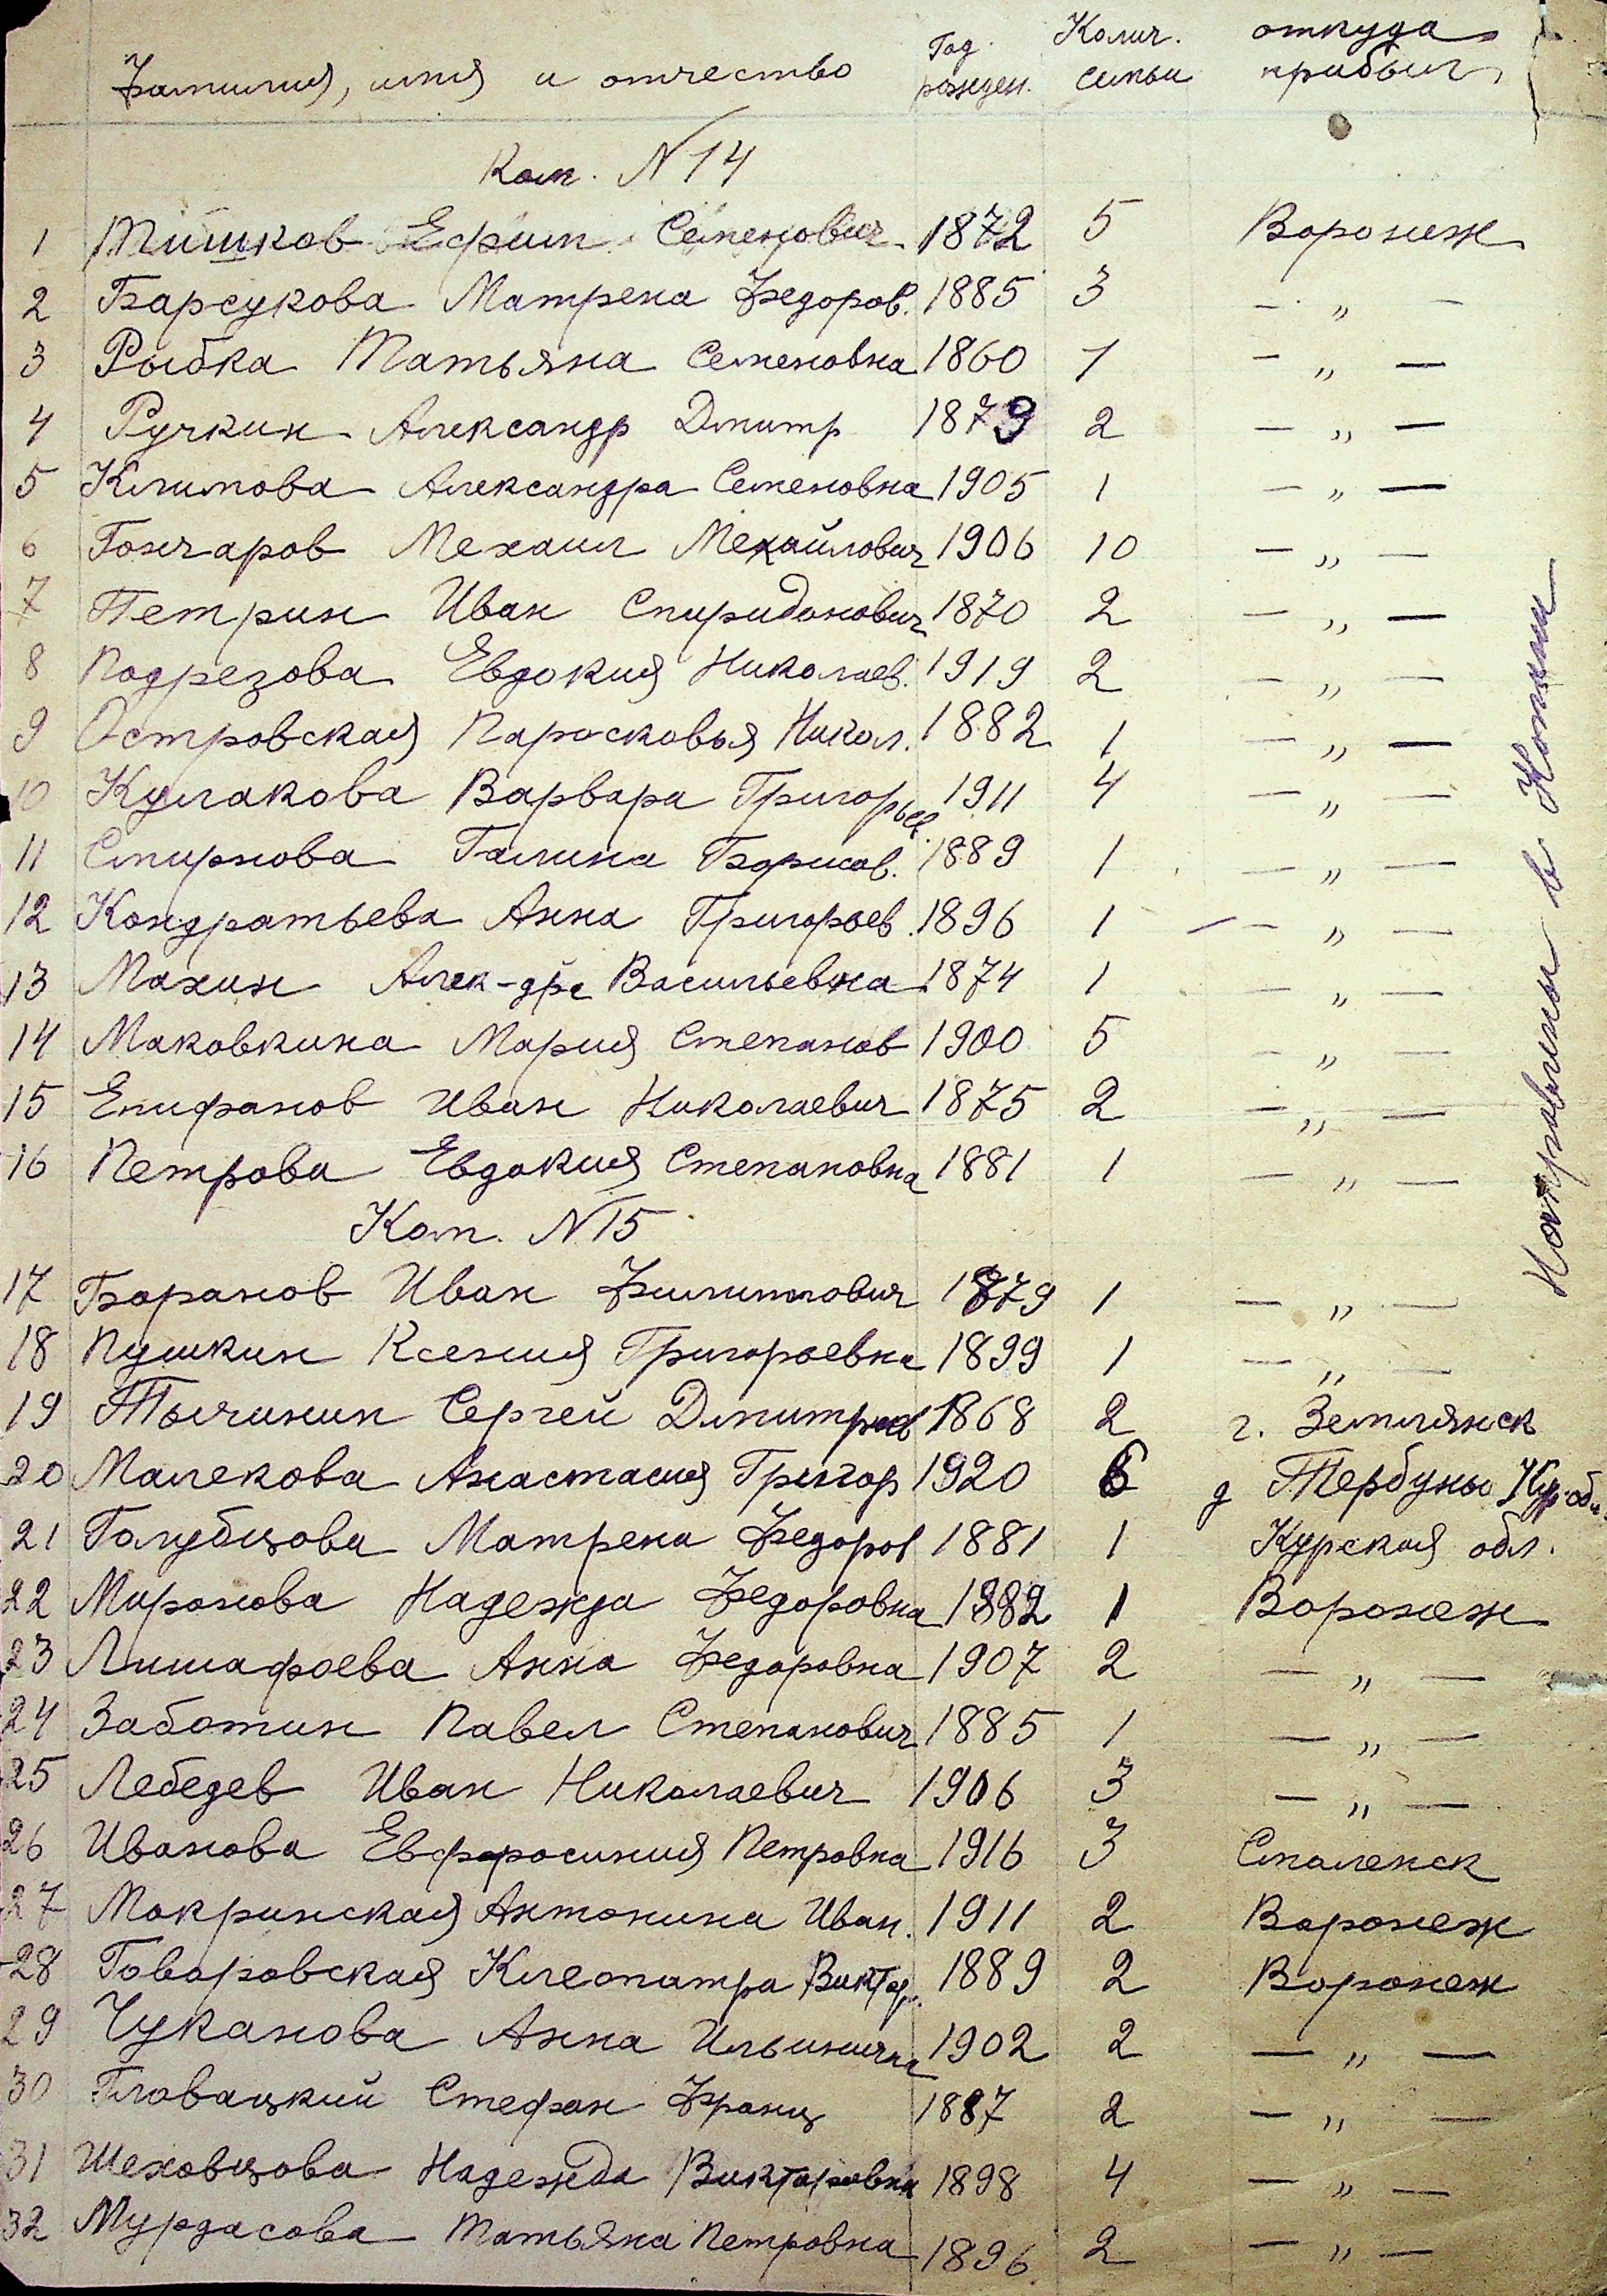 Фамилия, имя и отчество Год рожден. Колич. семьи откуда прибыл
Ком. N 14
1 Тишков Ефим Семенович 1872 5 Воронеж
2 Барсукова Матрена Федоров. 1885 3 — „ —
3 Рыбка Татьяна Семеновна 1860 1 — „ —
4 Ручкин Александр Дмитр 1879 2 — „ —
5 Климова Александра Семеновна 1905 1 — „ —
6 Гончаров Мехаил Мехайлович 1906 10 — „ —
7 Петрин Иван Спиридонович 1870 2 — „ —
8 Подрезова Евдокия Николаев. 1919 2 — „ —
9 Островская Паросковья Никол. 1882 1 — „ —
10 Кулакова Варвара Григорьев. 1911 4 — „ —
11 Смирнова Галина Борисов. 1889 1 — „ —
12 Кондратьева Анна Григорьев. 1896 1 — „ —
13 Махин Алек-дра Васильевна 1874 1 — „ —
14 Маковкина Мария Степанов 1900 5 — „ —
15 Епифанов Иван Николаевич 1875 2 — „ —
16 Петрова Евдокия Степановна 1881 1 — „ —
Ком. N 15
17 Баранов Иван Филиппович 1879 1 — „ —
18 Пушкин Ксения Григорьевна 1899 1 — „ —
19 Тычинин Сергей Дмитриев 1868 2 г. Землянск
20 Малекова Анастасия Григор 1920 6 д Тербуны Кур. обл.
21 Голубцова Матрена Федоров 1881 1 Курская обл.
22 Миронова Надежда Федоровна 1882 1 Воронеж
23 Лишафаева Анна Федоровна 1907 2 — „ —
24 Заботин Павел Степанович 1885 1 — „ —
25 Лебедев Иван Николаевич 1906 3 — „ —
26 Иванова Евфросиния Петровна 1916 3 Смоленск
27 Мокринская Антонина Иван. 1911 2 Воронеж
28 Говоровская Клеопатра Виктор. 1889 2 Воронеж
29 Чуканова Анна Ильинична 1902 2 — „ —
30 Гловацкий Стефан Франц 1887 2 — „ —
31 Шеховцова Надежда Викторовна 1898 4 — „ —
32 Мурдасова Татьяна Петровна 1896 2 — „ —
Направлены в